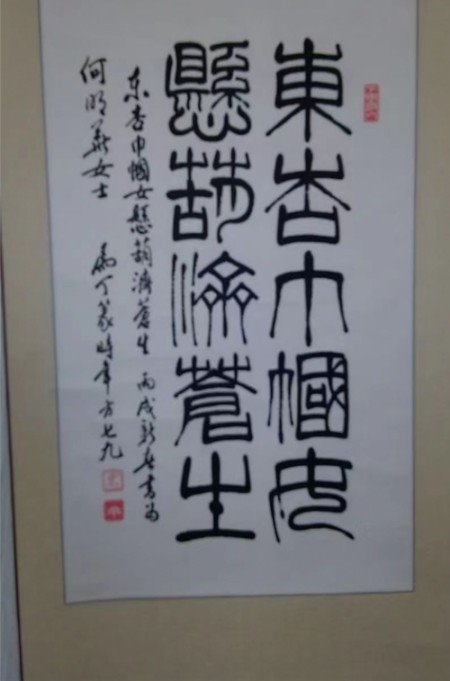 東杏巾幗女
懸葫濟蒼生
东杏巾帼女懸葫濟蒼生 丙戌新春書为
何明華女士 丁篆時年方七九